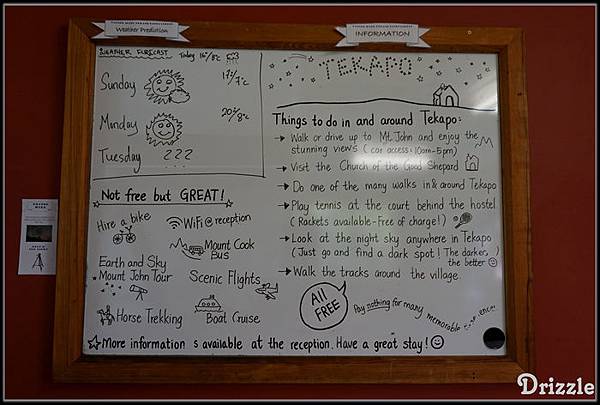 Weather Prediction
INFORMATION
WEATHER FORECAST
Today 16°/8°c
Sunday
17°/7°c
Munday
20°/8°c
Tuesday ???
Not free but GREAT!
Hire a bike
WiFi @ reception
Mount Cook
BUS
Earth and Sky
Mount John Tour
Scenic Flights
Horse Trekking
Boat Cruise
TEKAPO
Things to do in and around Tekapo:
→ Walk or drive up to Mt. John and enjoy the
stunning views (car access: 10am-5pm)
→ Visit the Church of the Good Shepard
→ Do one of the many walks in & around Tekapo
→ Play tennis at the court behind the hostel
(Rackets available - Free of charge!)
→ Look at the night sky anywhere in Tekapo
(Just go and find a dark spot! The darker,
the better ☺)
→ Walk the tracks around the village
All
FREE
Pay nothing for many memorable
☆ More information s available at the reception. Have a great stay! ☺
Drizzle